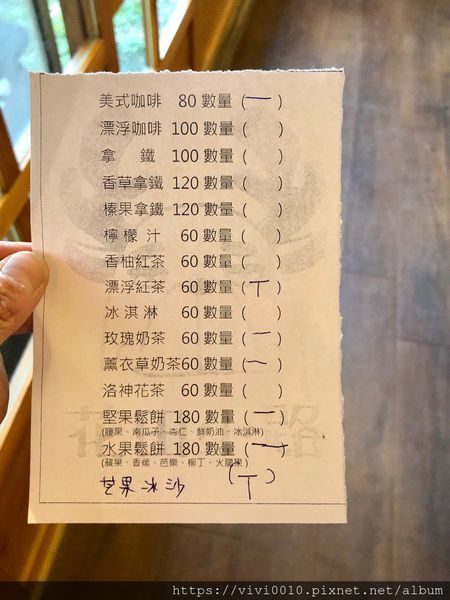 美式咖啡 80 數量 (一)
漂浮咖啡 100 數量 ( )
拿 鐵 100 數量 ( )
香草拿鐵 120 數量 ( )
榛果拿鐵 120 數量 ( )
檸檬汁 60 數量 ( )
香柚紅茶 60 數量 ( )
漂浮紅茶 60 數量 (丅)
冰淇淋 60 數量 ( )
玫瑰奶茶 60 數量 (一)
薰衣草奶茶60 數量 (一)
洛神花茶 60 數量 ( )
堅果鬆餅 180 數量 (一)
(腰果、南瓜子、杏仁、鮮奶油、冰淇淋)
水果鬆餅 180 數量 (一)
(蘋果、香蕉、芭樂、柳丁、火龍果)
芒果冰沙 (丅)
https://vivi0010.pixnet.net/album